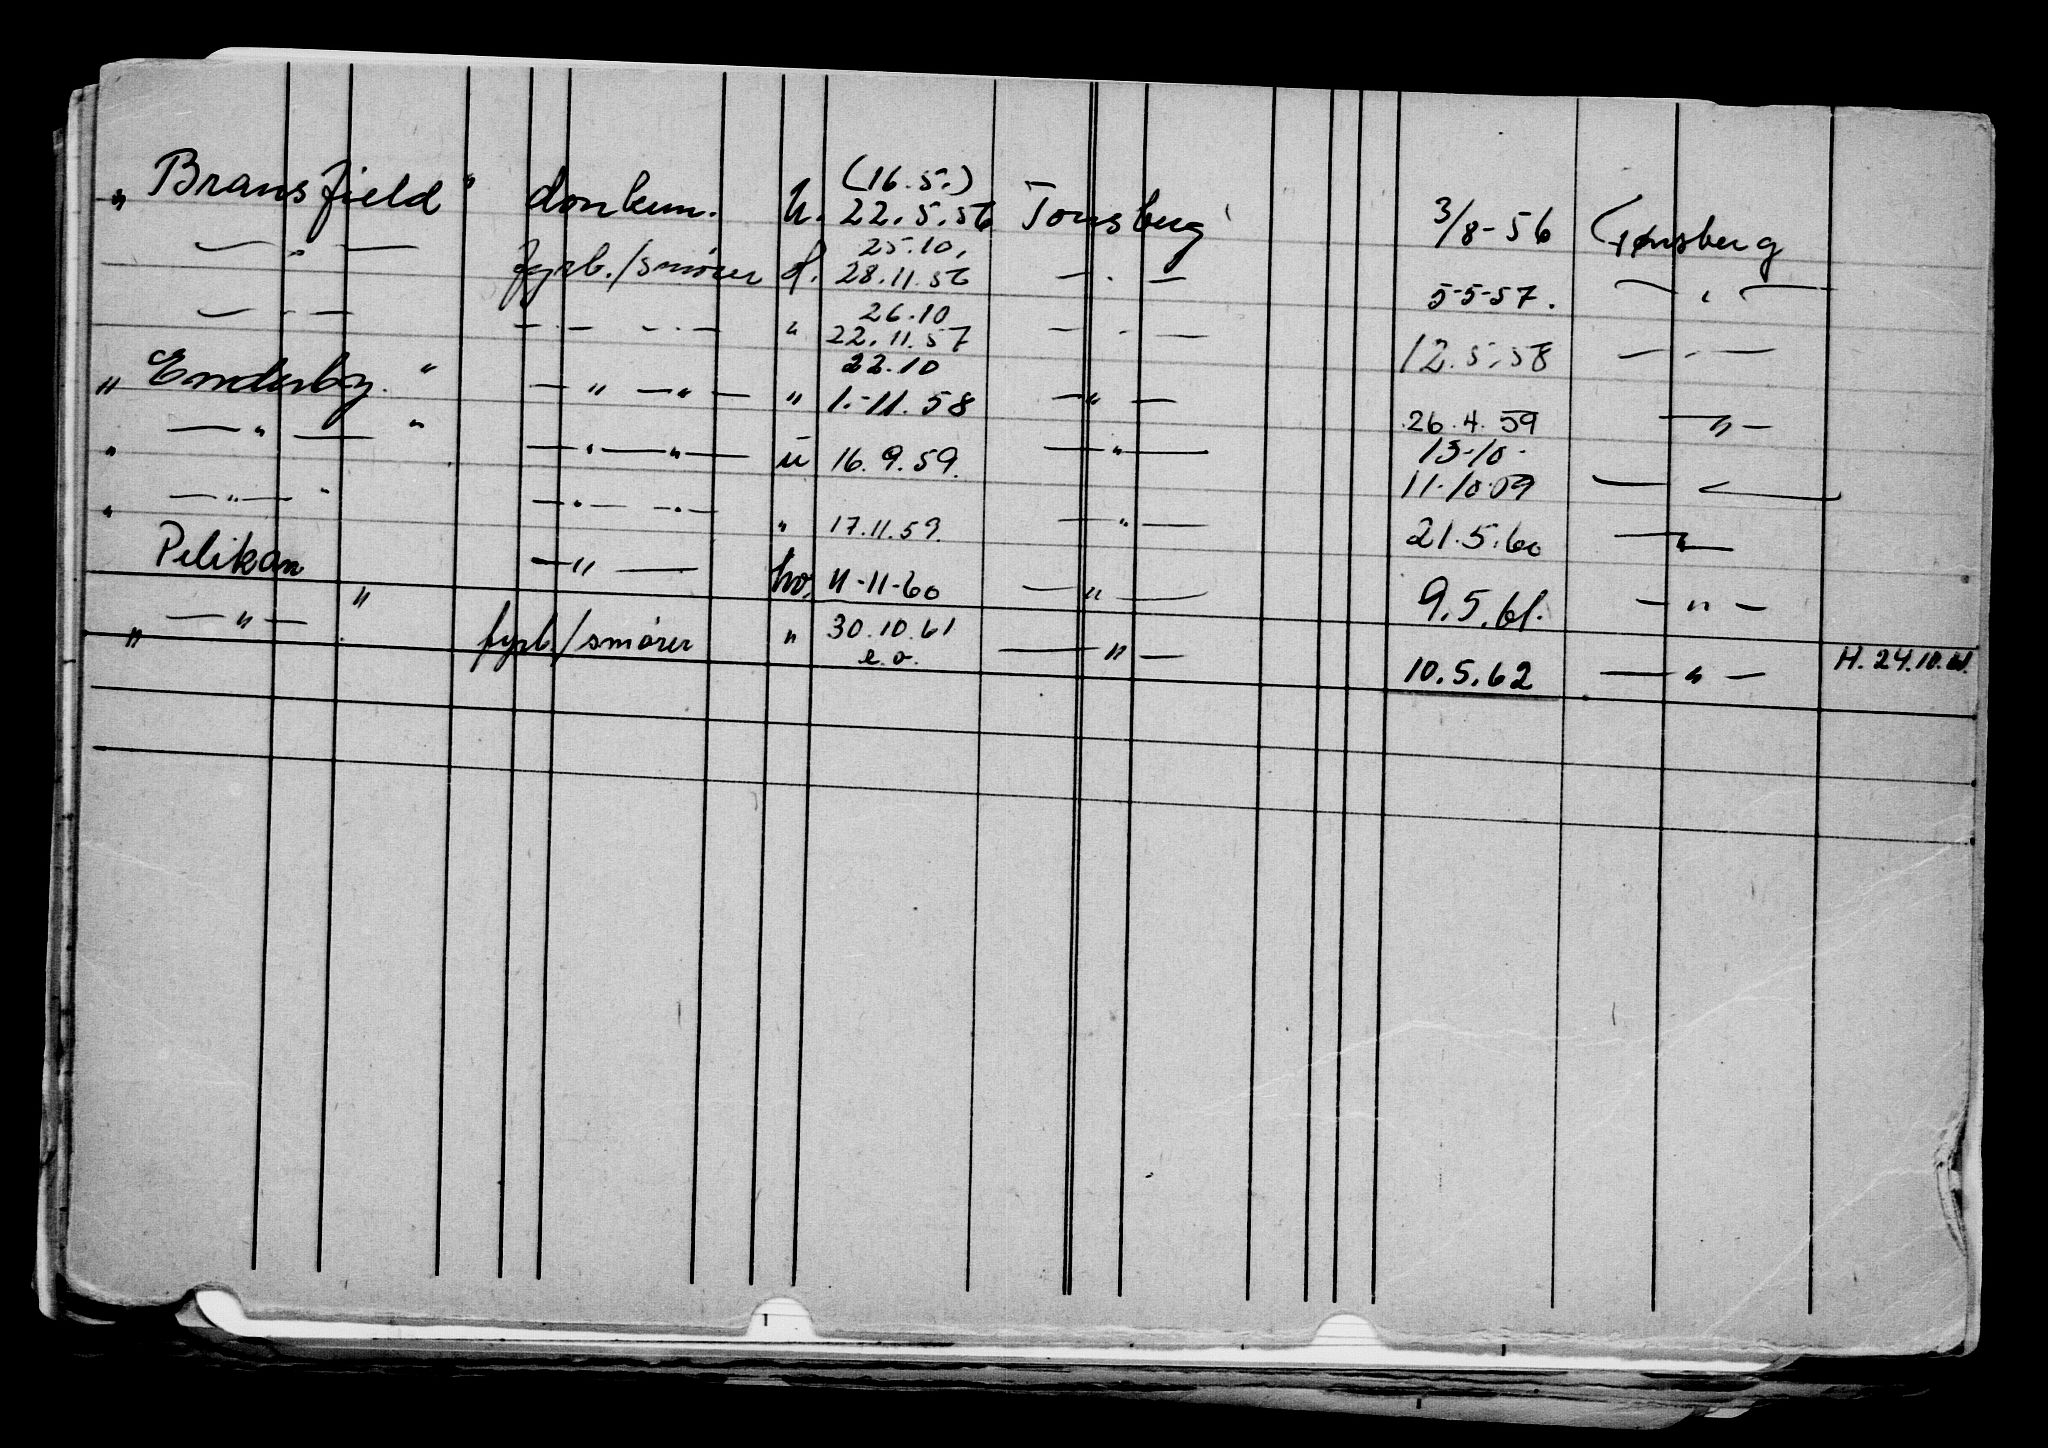 „ Bransfield " donkeym. u. (16.5.) 22.5.56 Tønsberg 3/8-56 Tønsberg
— „ — fyrb./smører d. 25.10. 28.11.56 — . — 5-5-57. — " —
— . — — . — — . — " 26.10 22.11.57 — . — 12.5.58 — . —
„ Enderby. " — " — " — " 22.10 1.-11.58 — " — 26.4.59 — " —
" — " — " — " — " — u 16.9.59. — " — 13-10- 11-10-59 —
" — " — " — " — — " — " 17.11.59. — " — 21.5.60 — " —
Pelikan " — " — ho. 11-11-60 — " — 9.5.61. — " —
„ — " — fyrb/smører " 30.10.61 e.o. — " — 10.5.62 — " — H. 24.10.61.